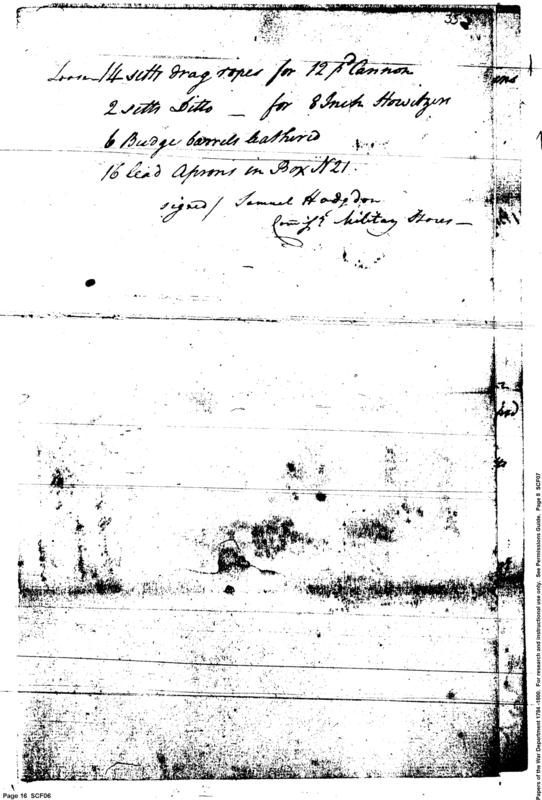 35
Loose 14 setts drag ropes for 12 pd Cannon
2 setts Ditto — for 8 Inch Howitzers
6 Budge barrels leathered
16 lead Aprons in Box N 21.
signed / Samuel Hodgdon
Military Stores —
Page 16 SCF06
Papers of the War Department 1784 -1800. For research and instructional use only. See Permissions Guide. Page 8 SCF07